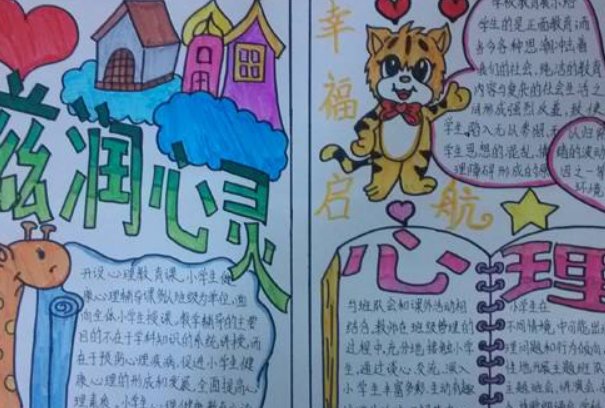 滋润心灵
开设心理教育课,小学生健
康心理辅导课则以班级为单位,面
向全体小学生授课,教学辅导的主要
目的不在于学科知识的系统讲授,而
在于预防心理疾病,促进小学生健
康心理的形成和发展,全面提高心
理素质
幸福启航
学校教育展示给
学生的是正面教育;而
当今各种思潮冲击着
我们的社会,纯洁的教育
内容与复杂的社会生活之
间形成强烈反差,致使
学生陷入无以参照,无以归
学生思想的混乱,情绪的波动
理障碍形成的原因之一
环境
心理
与班队会和课外活动相
结合,教师在班级管理的
过程中,充分地接触小学
生,通过谈心、交流,深入
小学生丰富多彩、生动有趣
小学生在
不同情境,中可能出
理问题和行为倾向
性地开展主题班队
主题班会、讲演会、